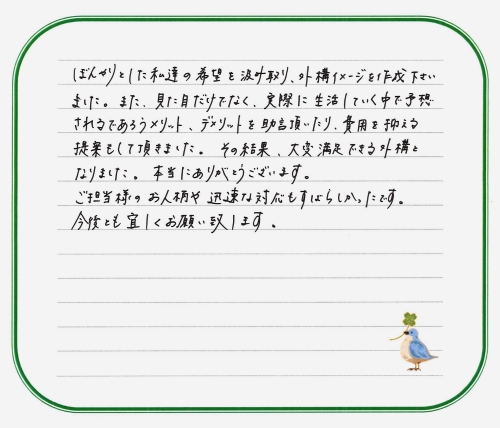 ぼんやりとした私達の希望を汲み取り、外構イメージを作成下さい
ました。また、見た目だけでなく、実際に生活していく中で予想
されるであろうメリット、デメリットを助言頂いたり、費用を抑える
提案もして頂きました。その結果、大変満足できる外構と
なりました。本当にありがとうございます。
ご担当様のお人柄や迅速な対応もすばらしかったです。
今後とも宜しくお願い致します。